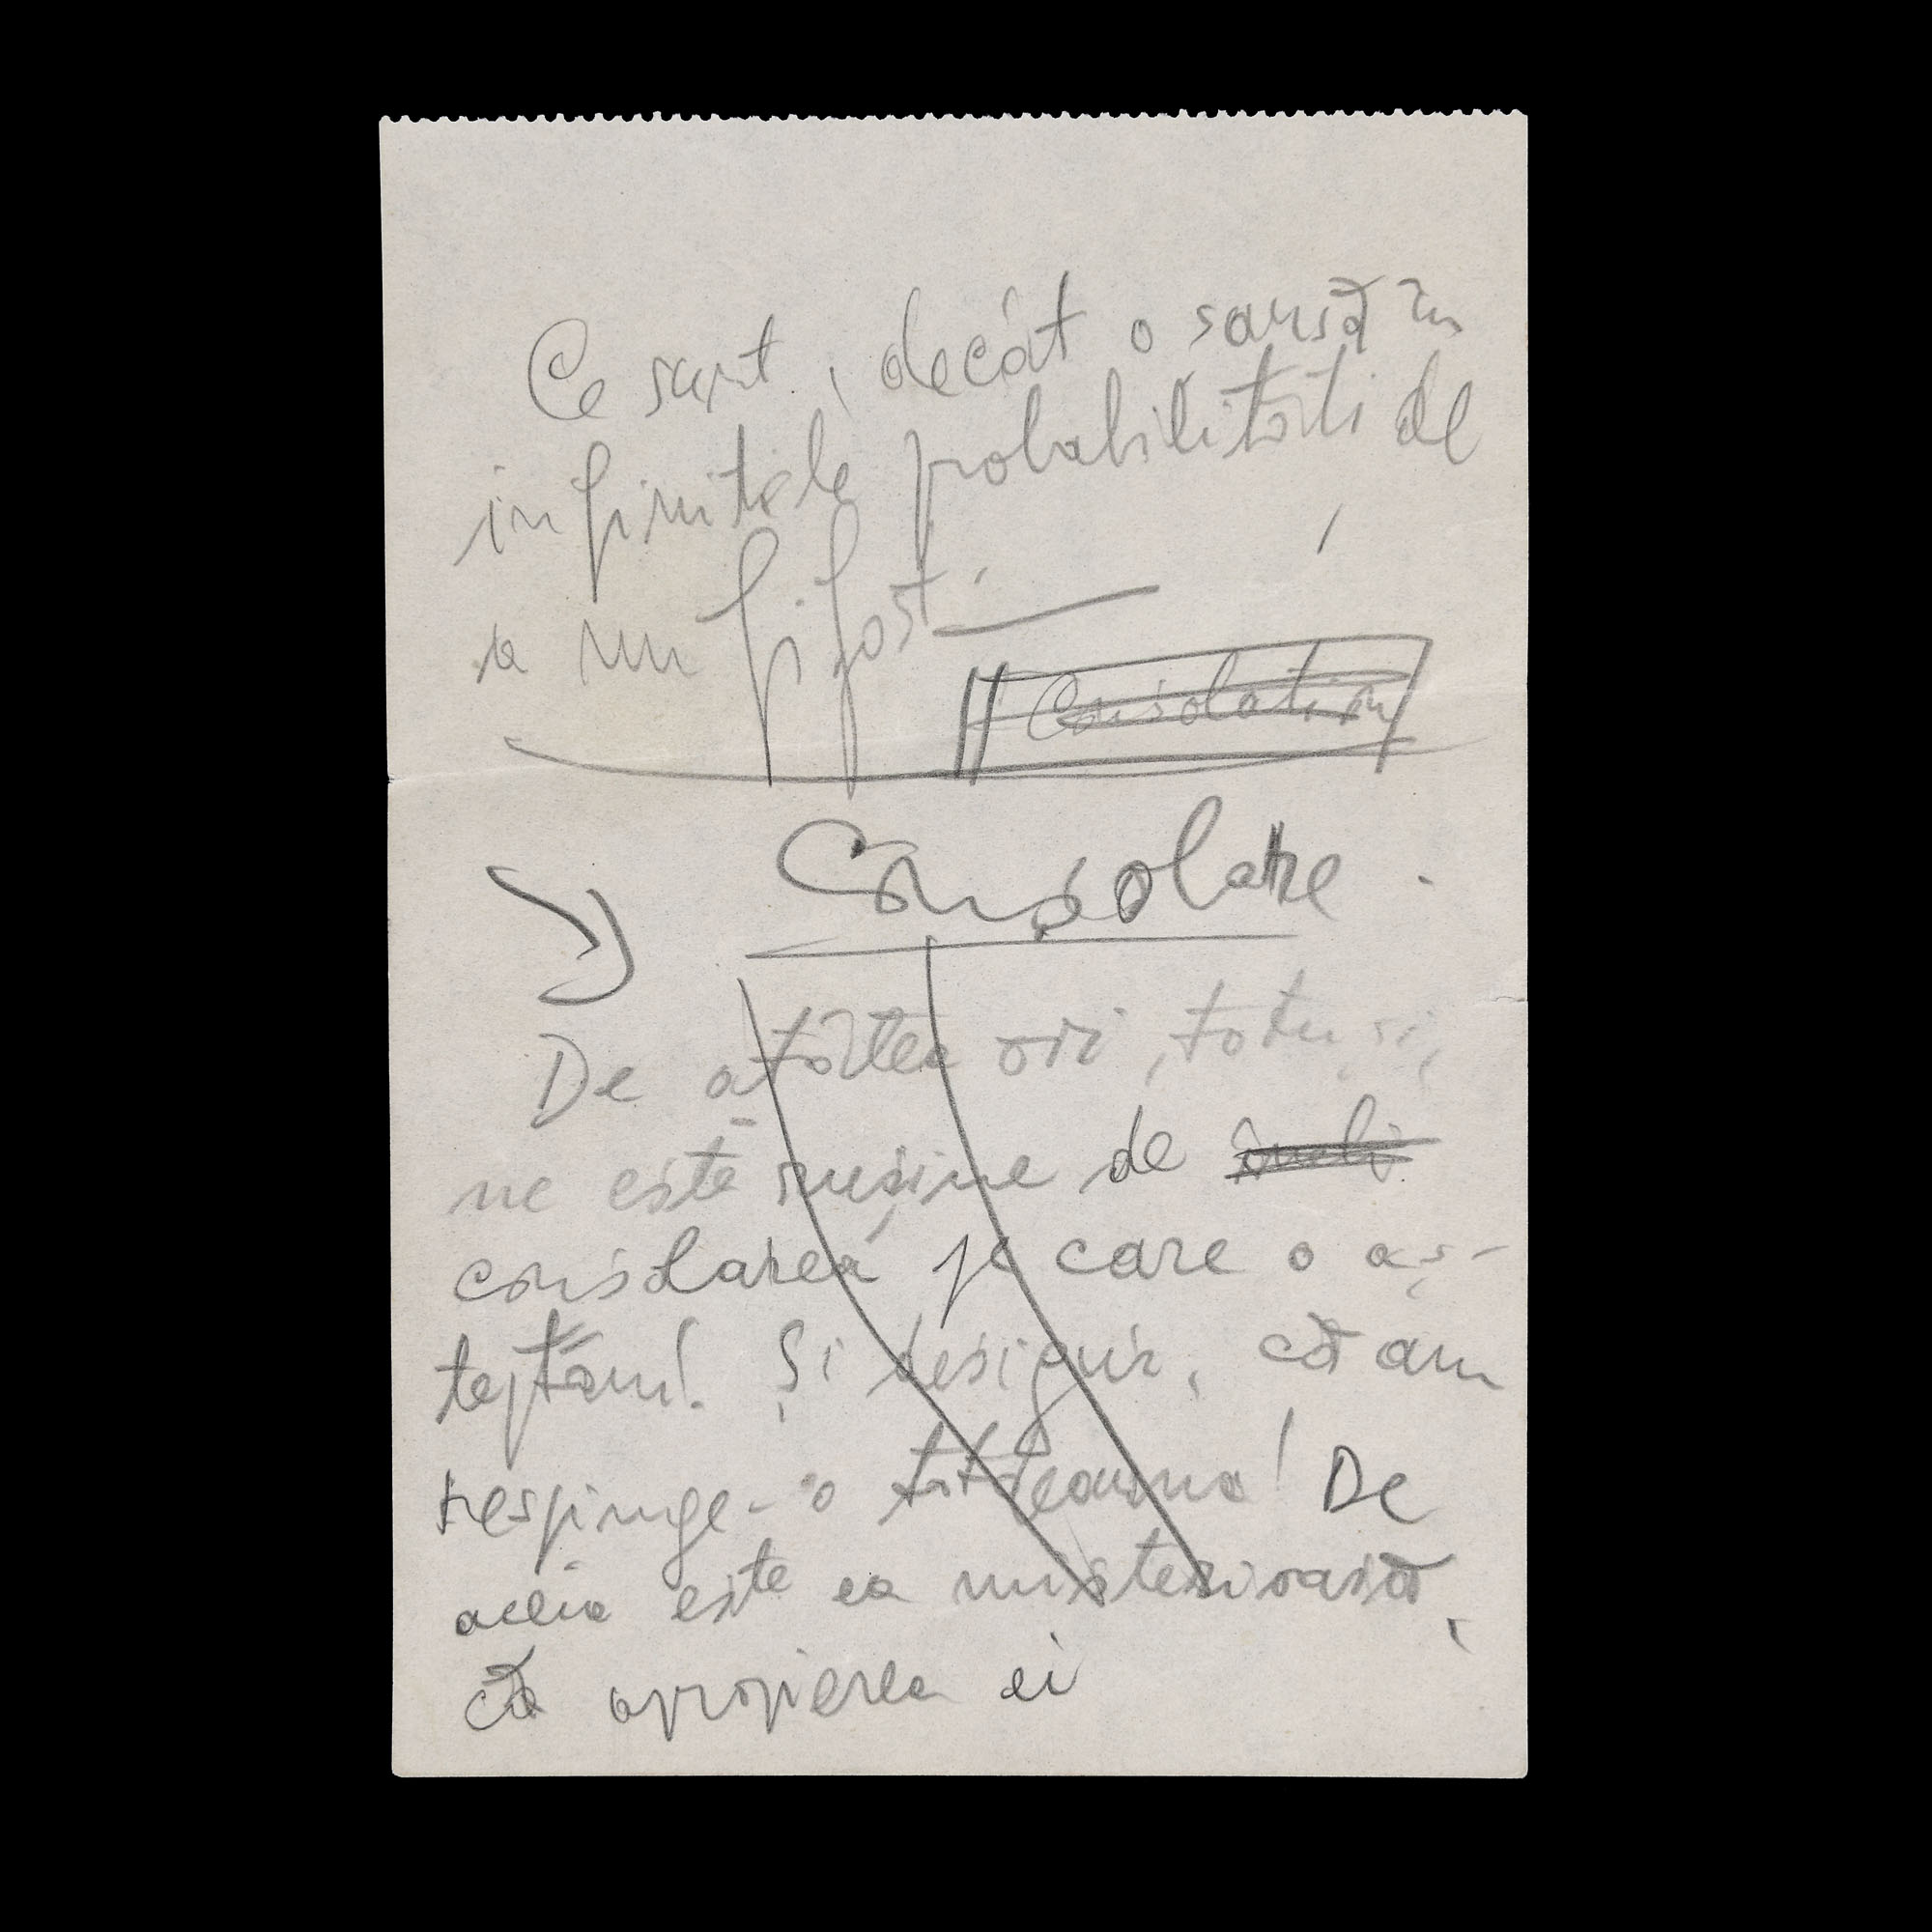 Ce sunt, decât o sansă în
infinitele probabilităti de
a nu fi fost.
Consolation
Consolare
De atâtea ori, totuşi,
ne este ruşine de
consolarea pe care o aş-
teptăm! Şi desigur, că am
respinge-o totdeauna! De
aceia este ea misterioasă,
că apropierea ei